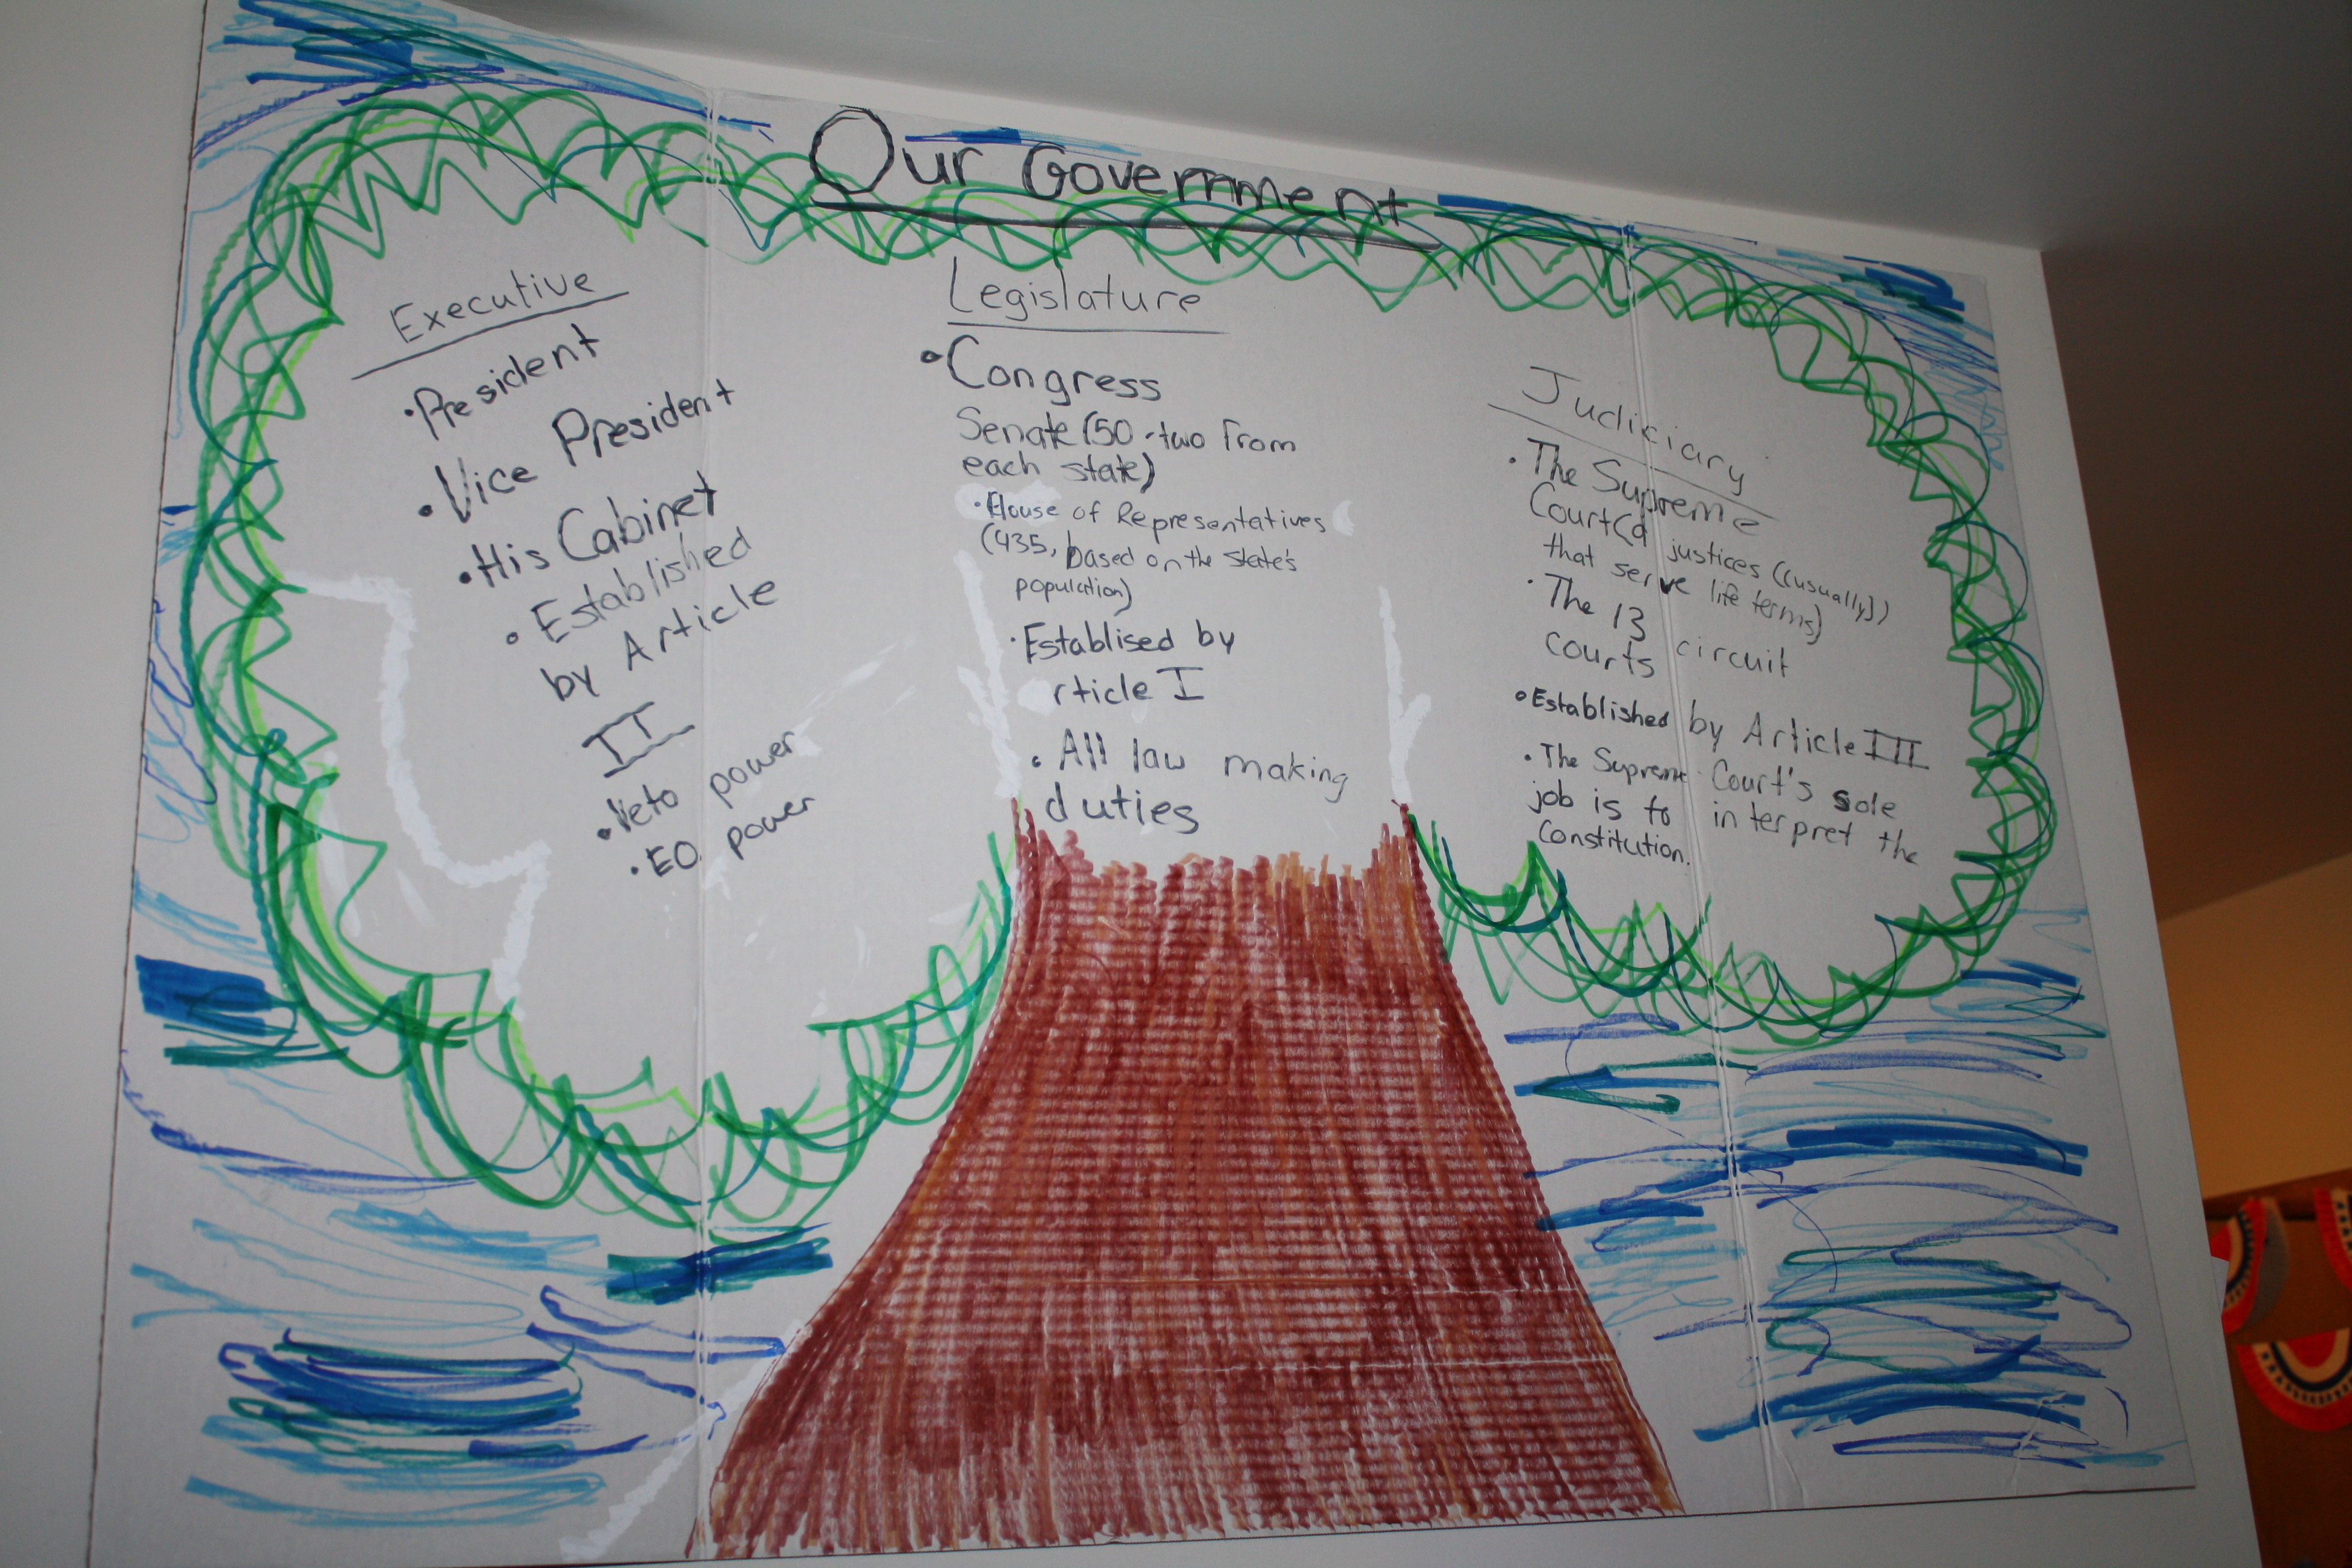 Our Government
Executive
• President
• Vice President
• His Cabinet
• Established
by Article
II
• Veto power
• EO power
Legislature
• Congress
Senate (50 - two from
each state)
• House of Representatives
(435, based on the state's
population)
• Establised by
rticle I
• All law making
duties
Judiciary
• The Supreme
Court (9 justices ((usually))
that serve life terms)
• The 13 circuit
courts
• Established by Article III
• The Supreme Court's sole
job is to interpret the
Constitution.